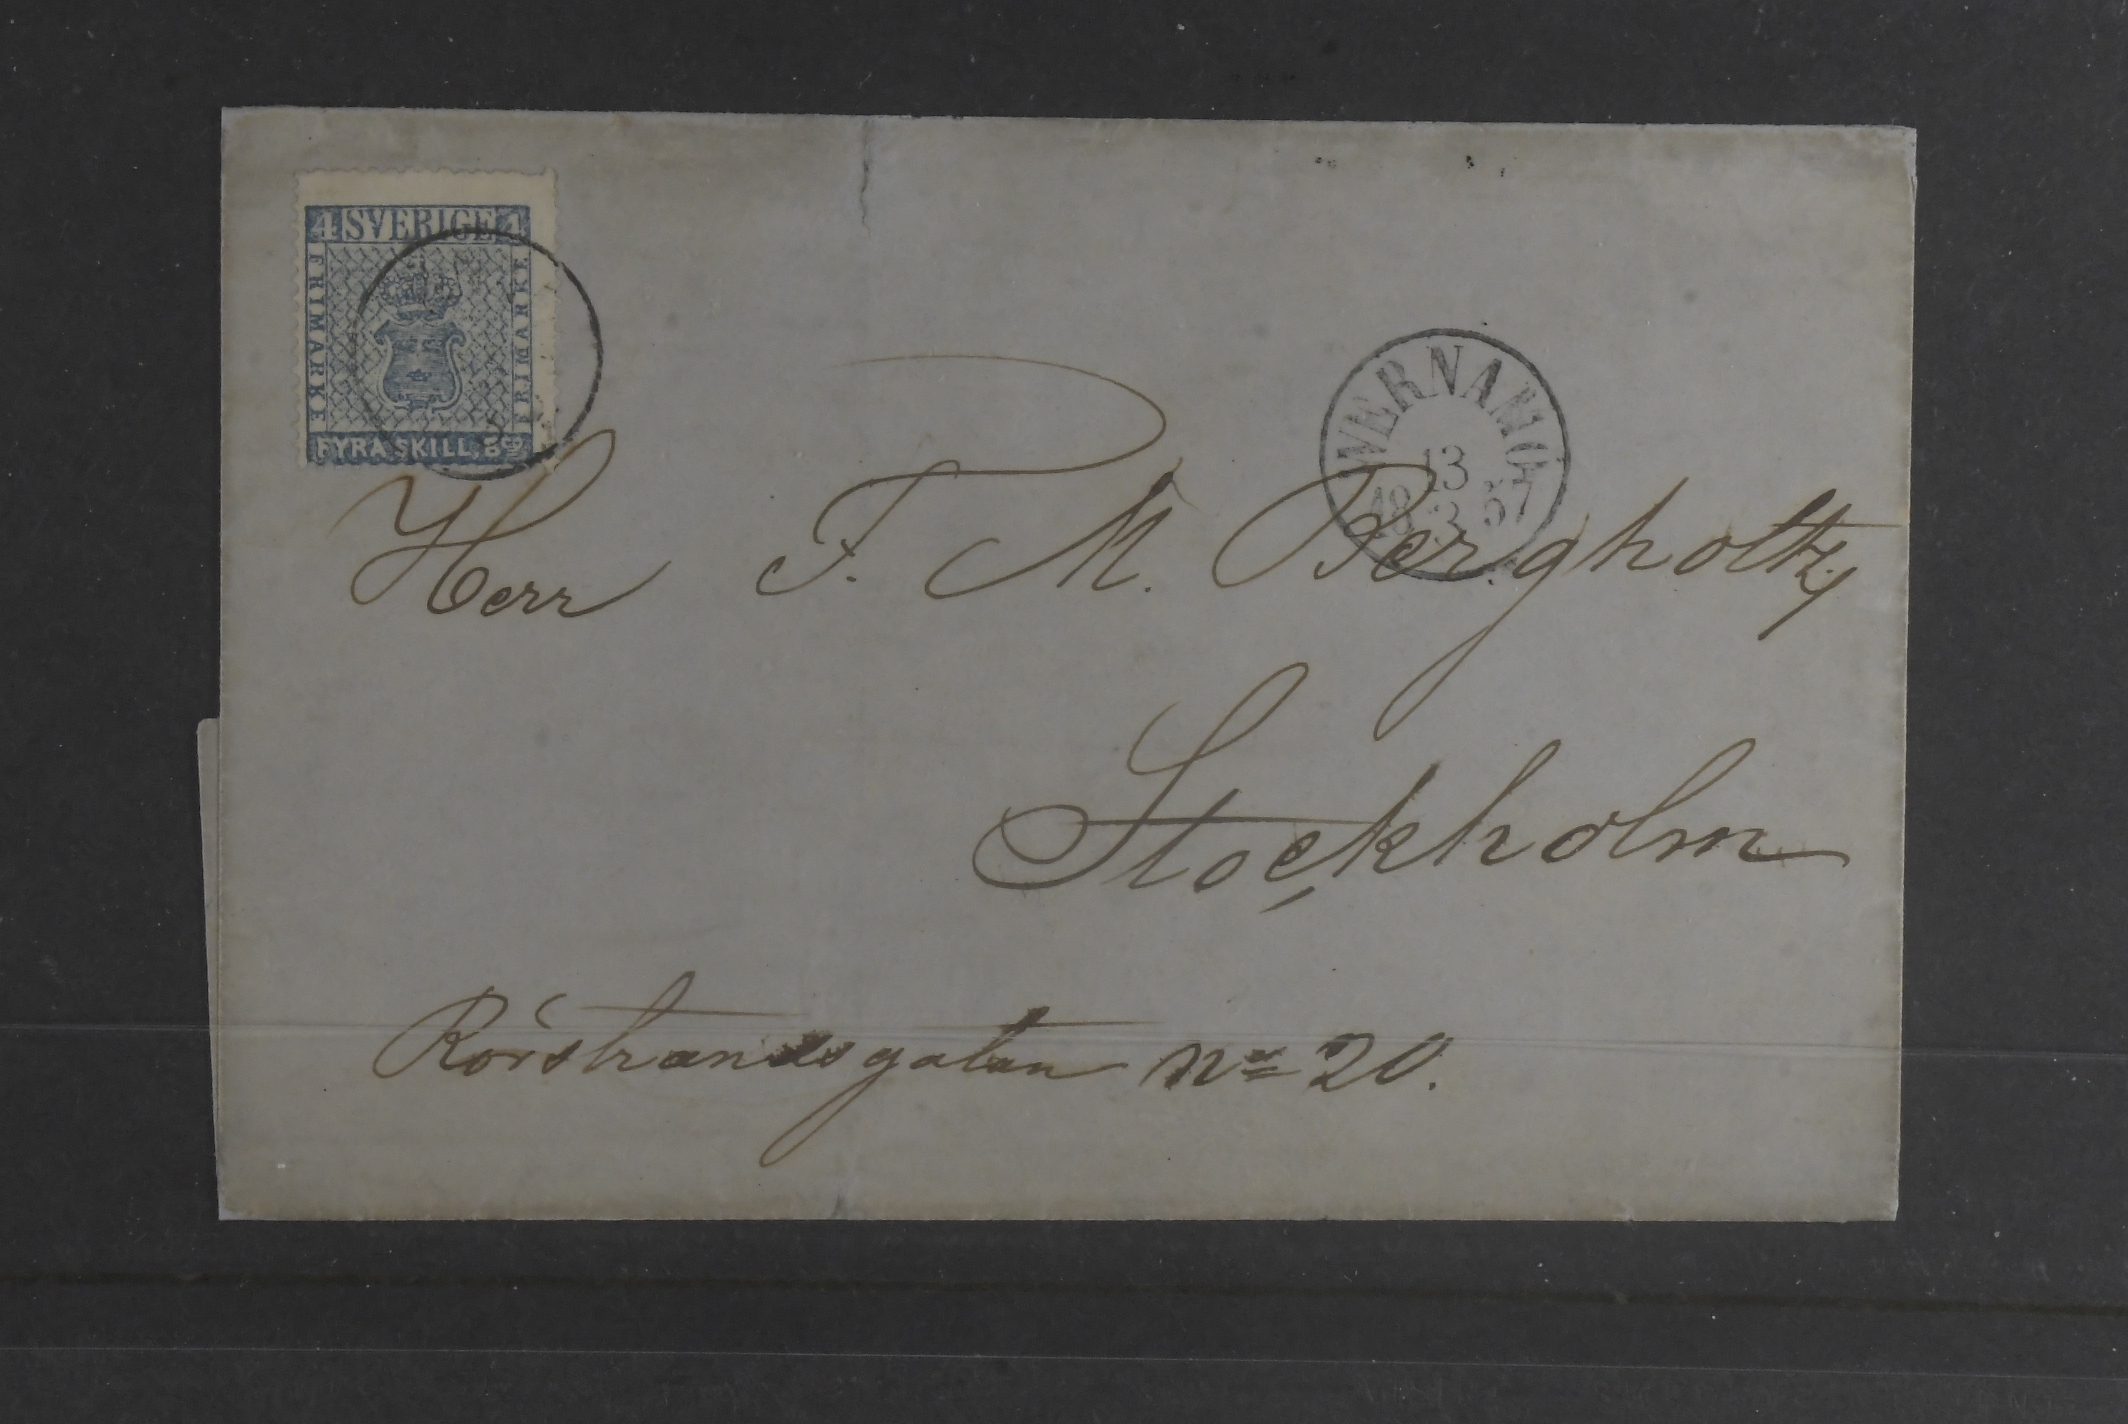 4 SVERIGE 4
FRIMARKE
FRIMARKE
FYRA SKILL. Bco
WERNAMO
13
18 3 57
Herr F. M. Bergholtz,
Stockholm
Rörstrandsgatan No 20.